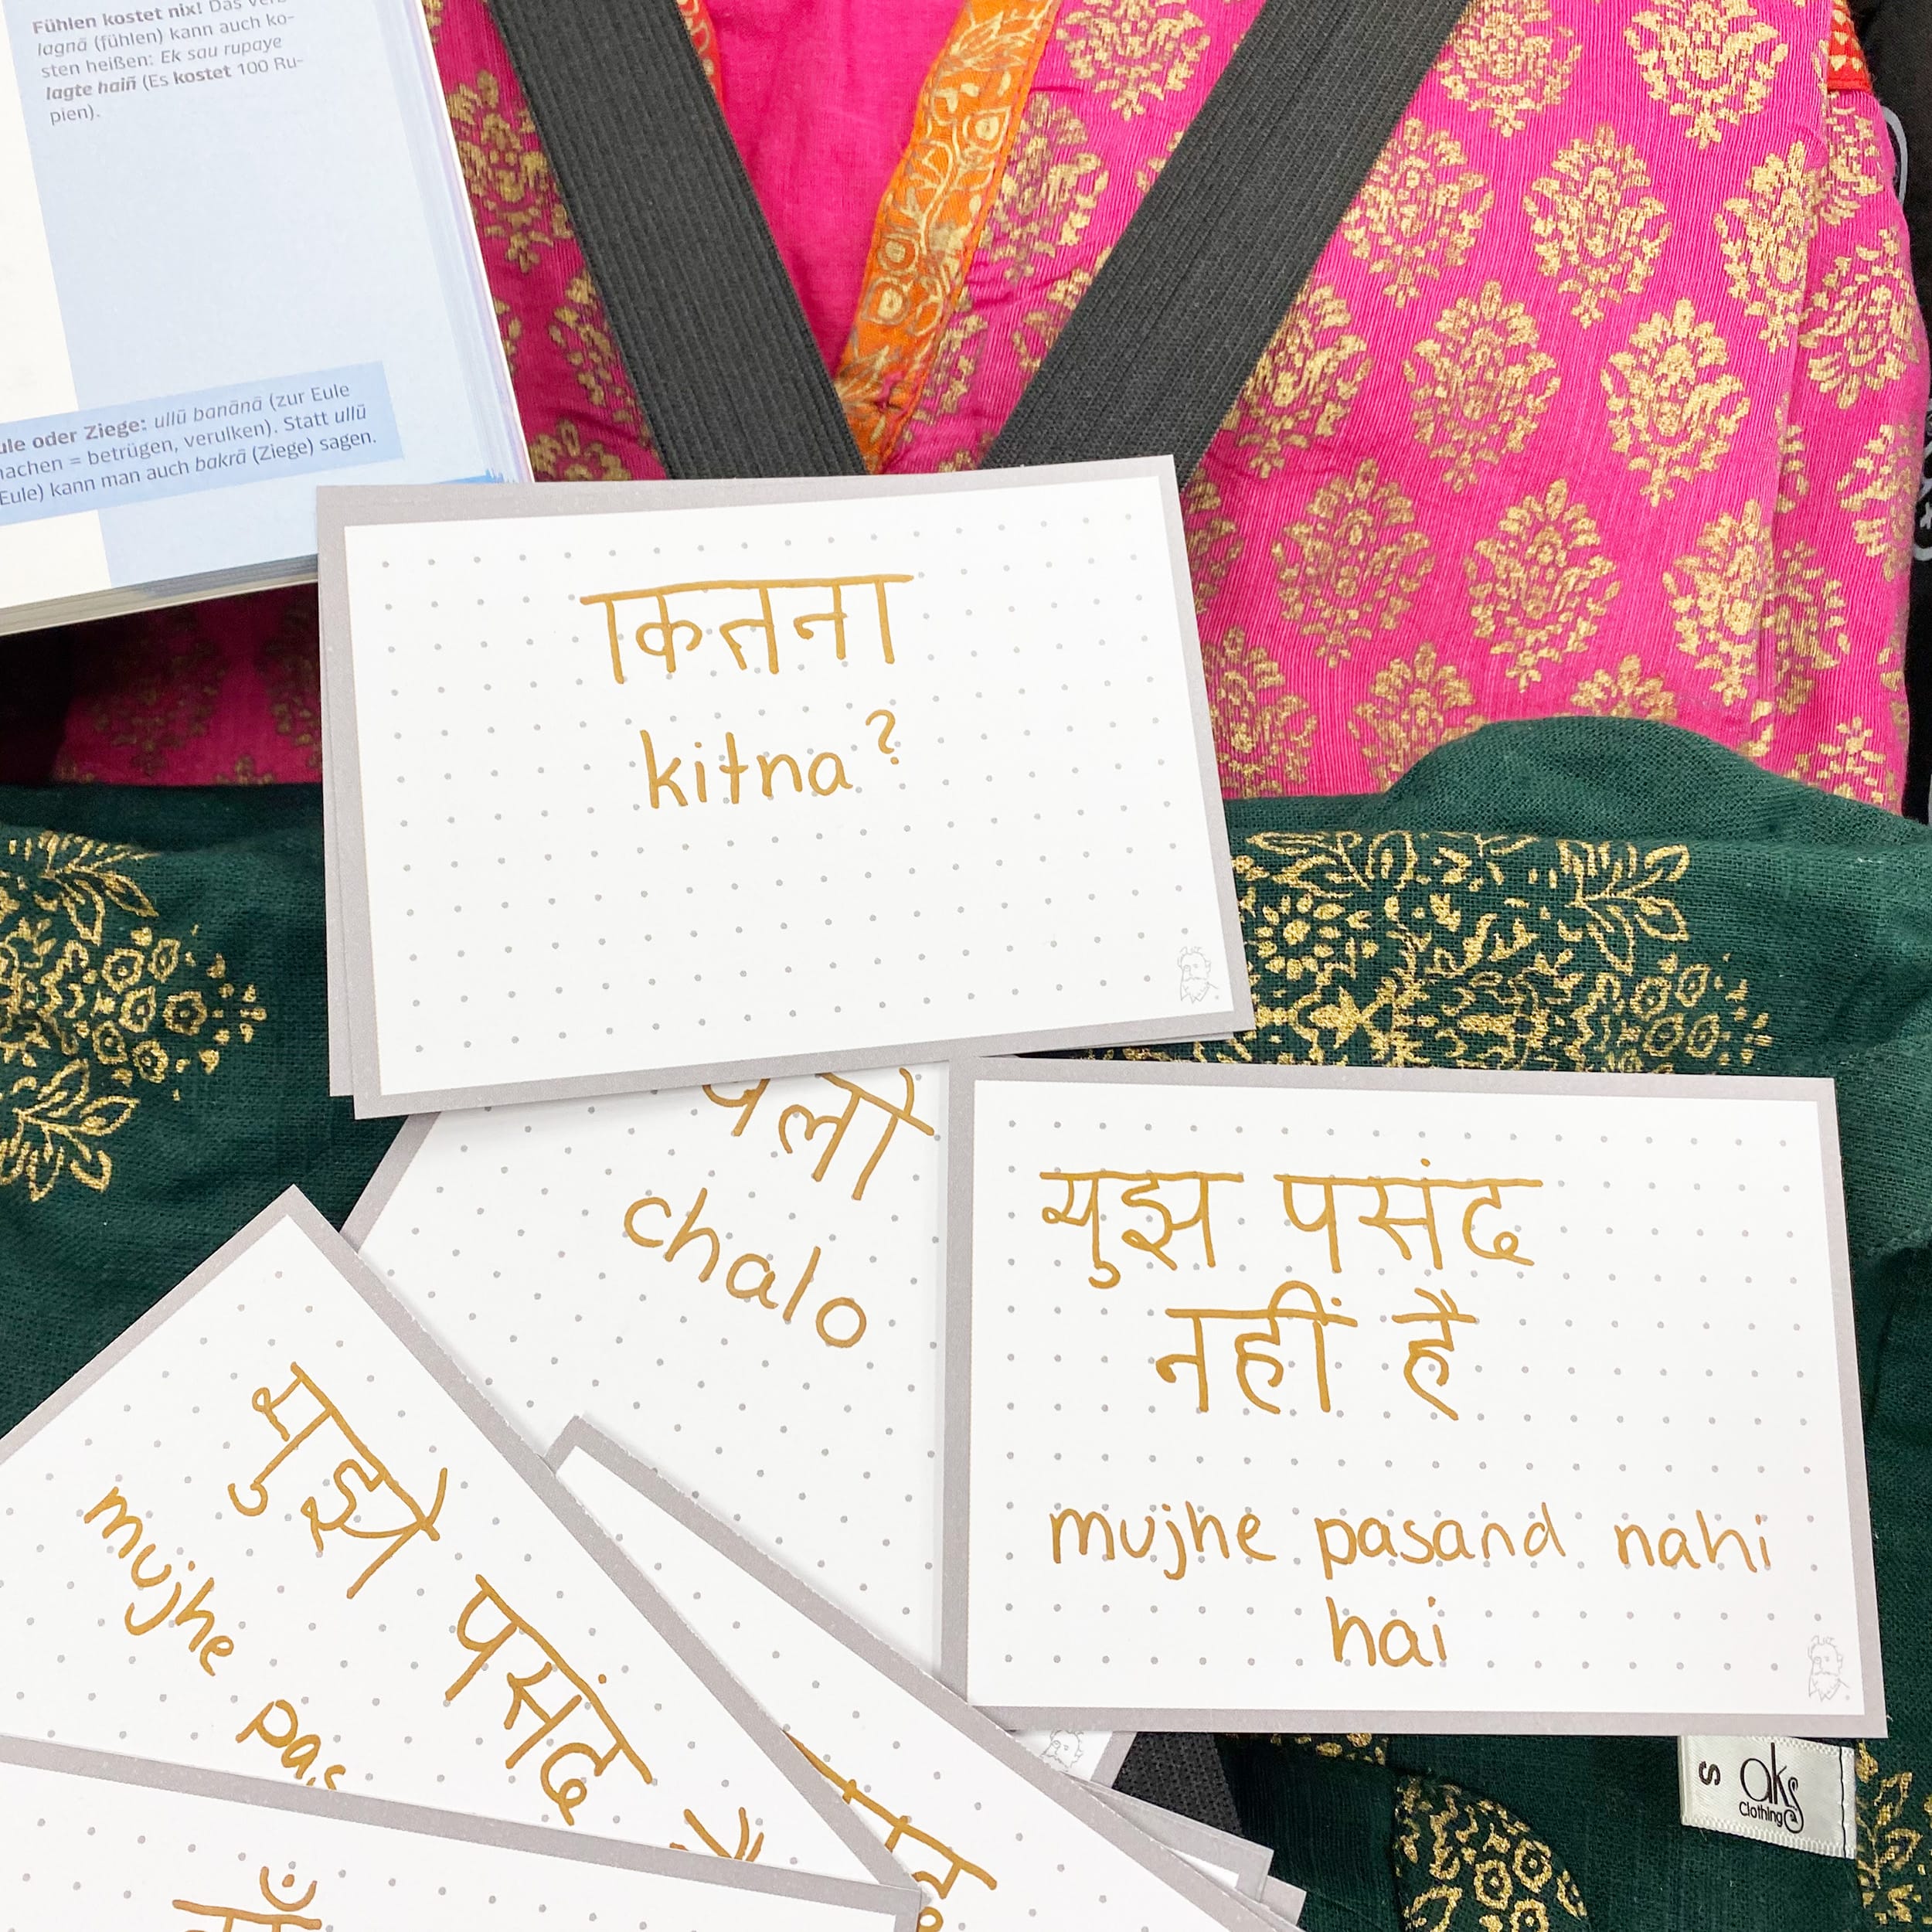 Fühlen kostet nix! Das Verb
lagnā (fühlen) kann auch ko-
sten heißen: Ek sau rupaye
lagte haiñ (Es kostet 100 Ru-
pien).
oder Ziege: ullū banānā (zur Eule
machen = betrügen, verulken). Statt ullū
Eule) kann man auch bakrā (Ziege) sagen.
कितना
kitna?
चलो
chalo
मुझ पसंद
नहीं है
mujhe pasand nahi
hai
मुझे पसंद
mujhe pas
S aks
Clothing